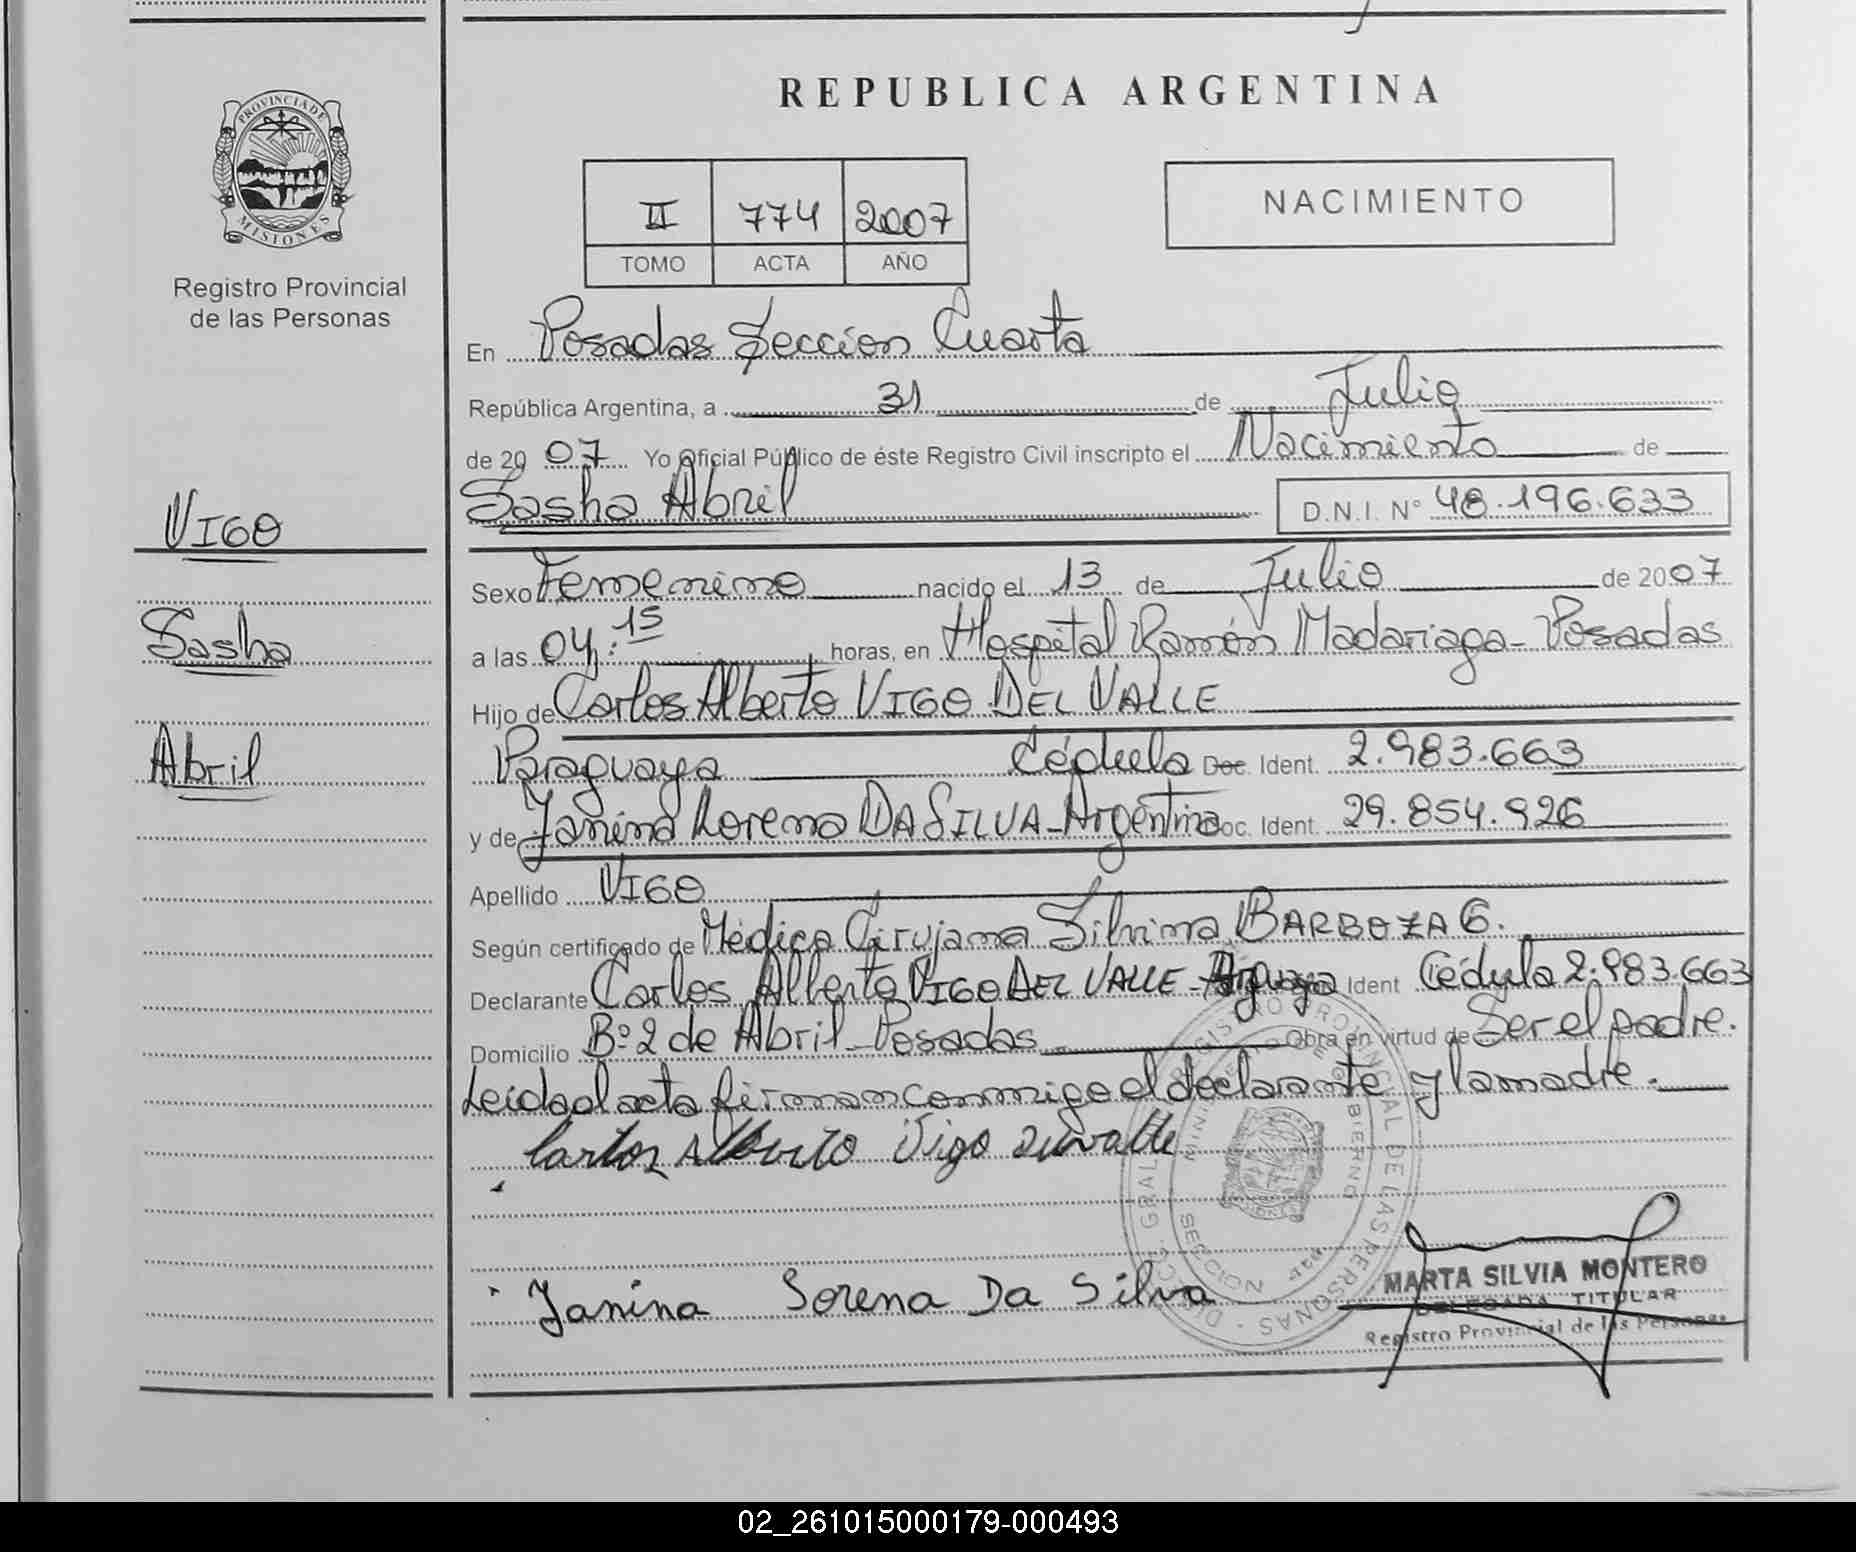 REPUBLICA ARGENTINA
PROVINCIA DE
MISIONES
Registro Provincial
de las Personas
II 774 2007
TOMO ACTA AÑO
NACIMIENTO
En Posadas Seccion Cuarta
República Argentina, a 31 de Julio
de 20 07 Yo Oficial Público de éste Registro Civil inscripto el Nacimiento de
Sasha Abril D.N.I. N° 48.196.633
VIGO
Sasha
Abril
Sexo Femenino nacido el 13 de Julio de 2007
a las 04:15 horas, en Hospital Ramón Madariaga - Posadas
Hijo de Carlos Alberto VIGO DEL VALLE
Paraguaya Cédula Doc. Ident. 2.983.663
y de Janina Lorena DA SILVA - Argentina Doc. Ident. 29.854.926
Apellido VIGO
Según certificado de Médica Cirujana Silvina BARBOZA G.
Declarante Carlos Alberto VIGO DEL VALLE - Ident Cédula 2.983.663
Domicilio B° 2 de Abril - Posadas Obra en virtud de Ser el padre.
Leida el acta firman conmigo el declarante y la madre.
Carlos Alberto Vigo Del valle
Janina Lorena Da Silva
REGISTRO PROVINCIAL DE LAS PERSONAS
SECCION
MARTA SILVIA MONTERO
DELEGADA TITULAR
Registro Provincial de las Personas
02_261015000179-000493